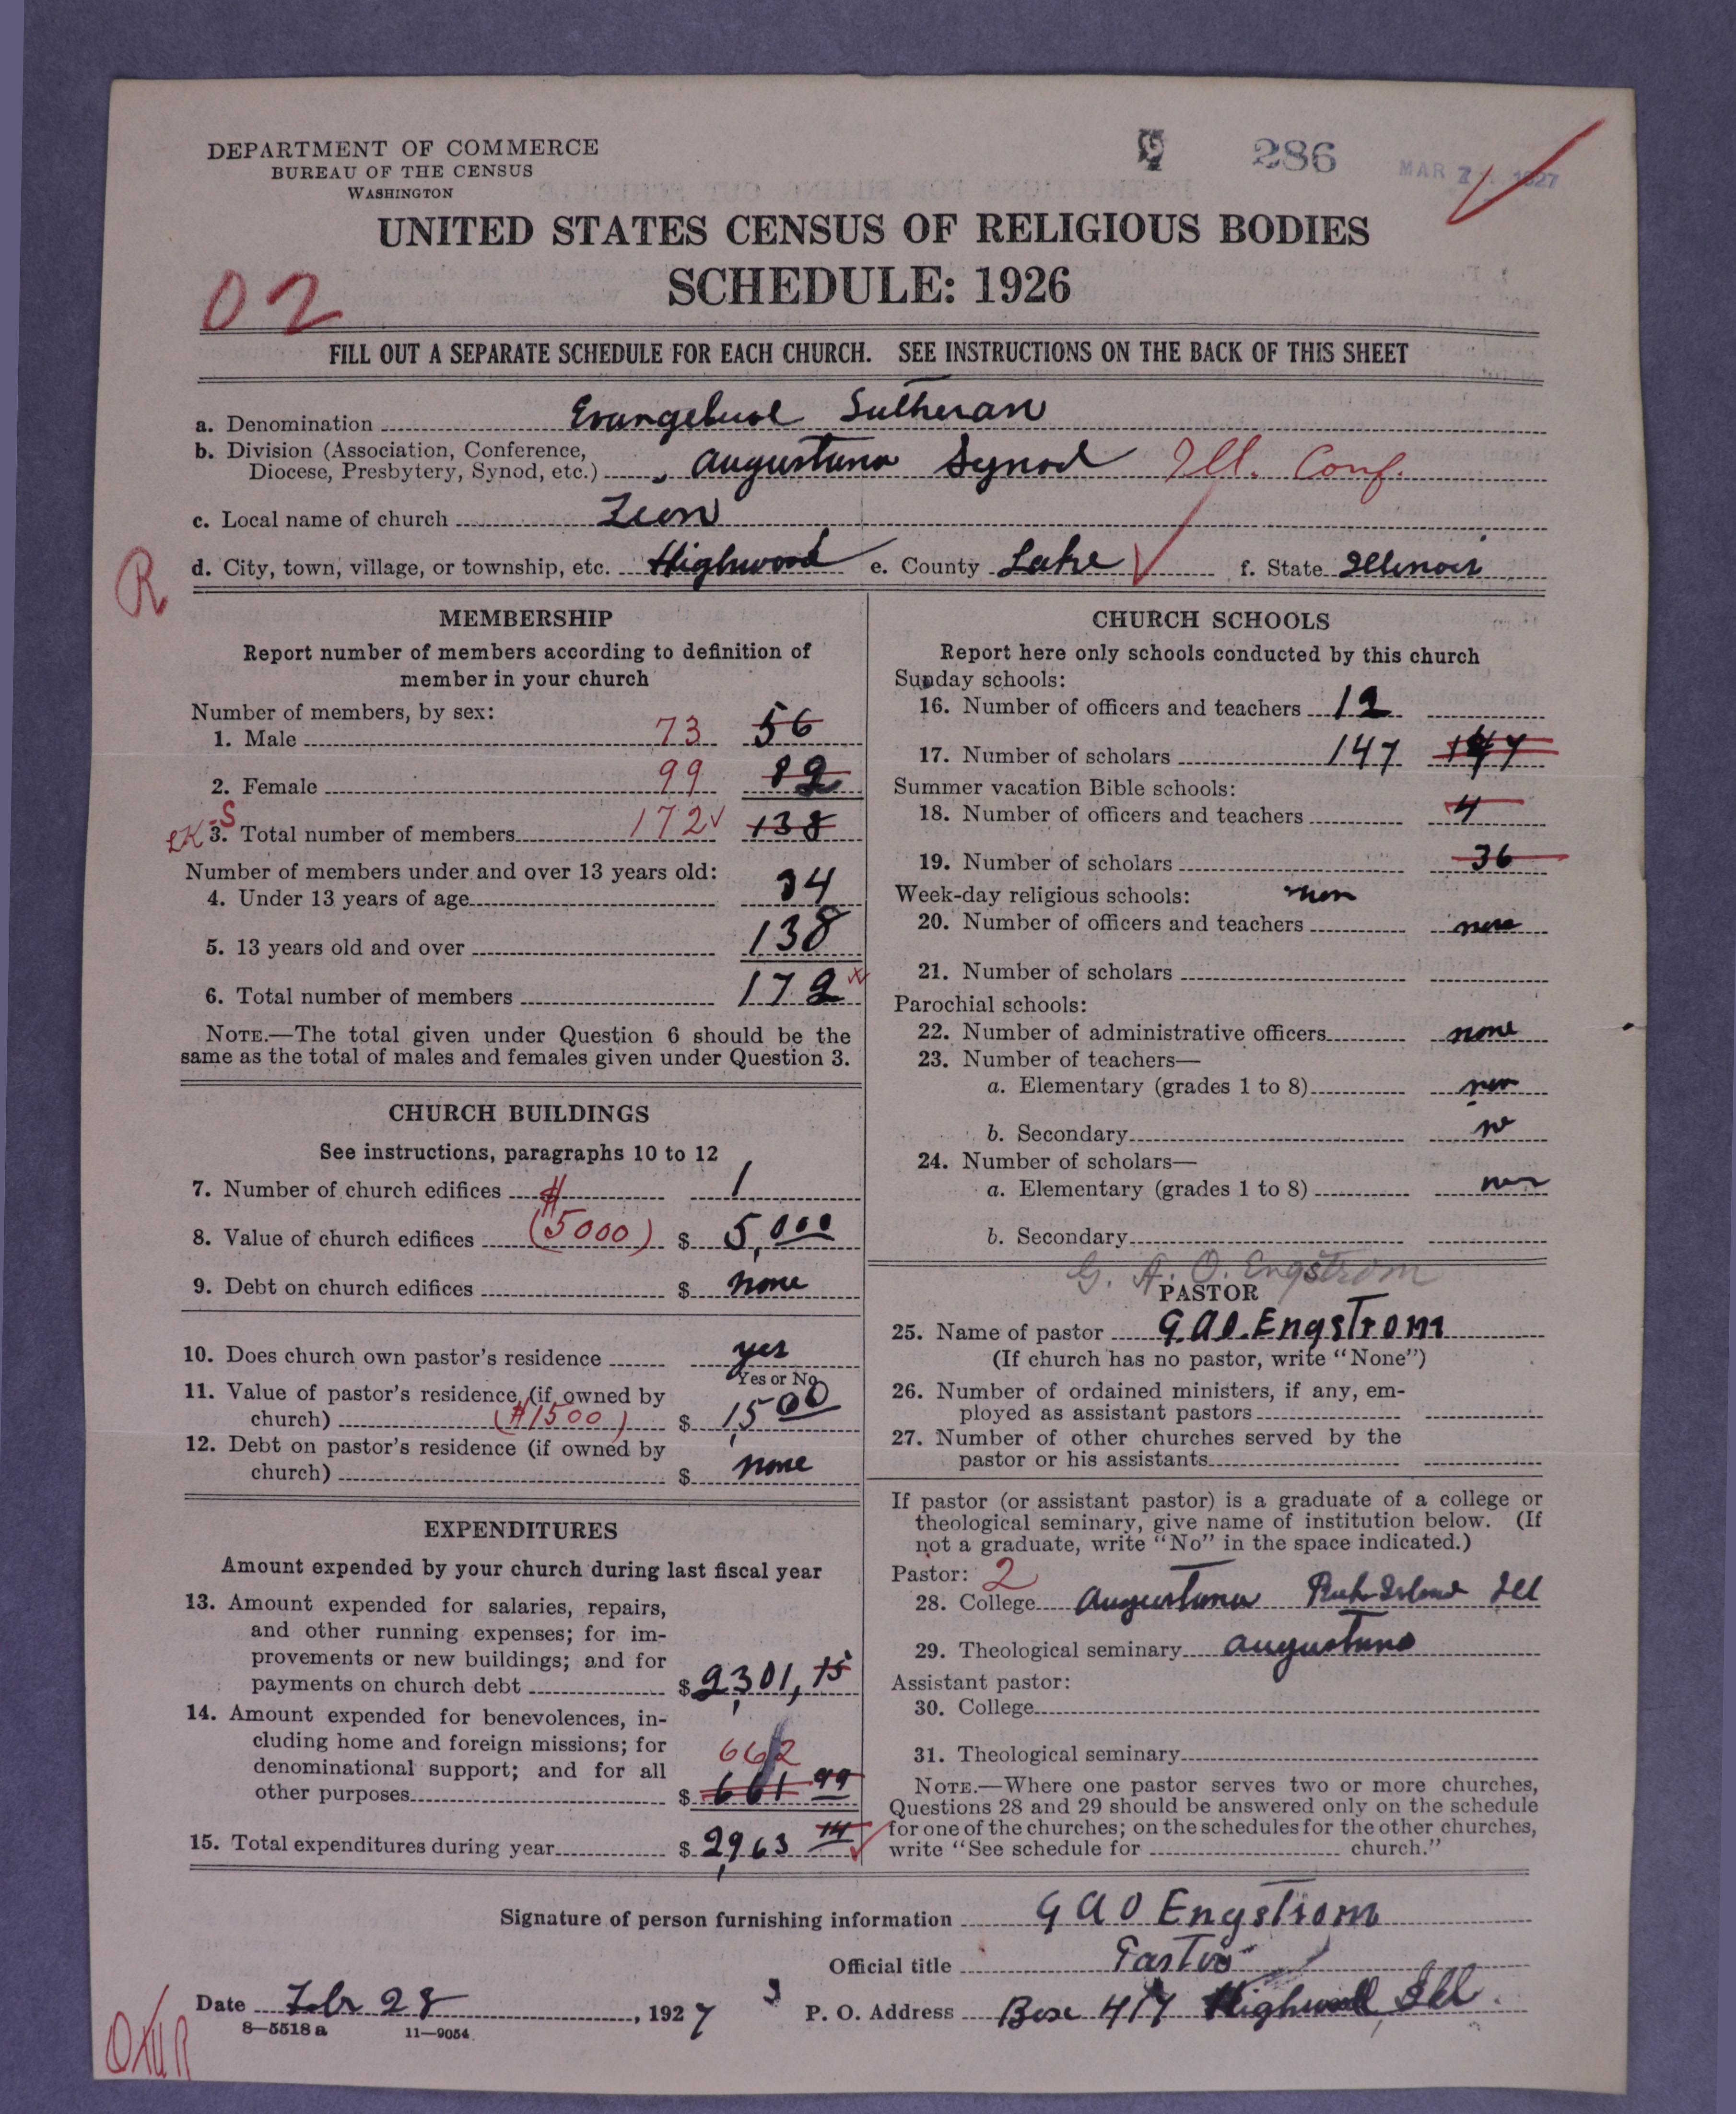 DEPARTMENT OF COMMERCE
BUREAU OF THE CENSUS
WASHINGTON
286
MAR 1927
UNITED STATES CENSUS OF RELIGIOUS BODIES
SCHEDULE: 1926
02
FILL OUT A SEPARATE SCHEDULE FOR EACH CHURCH. SEE INSTRUCTIONS ON THE BACK OF THIS SHEET
a. Denomination Evangelical Lutheran
b. Division (Association, Conference,
Diocese, Presbytery, Synod, etc.) Augustana Synod Ill. Conf.
c. Local name of church Zion
d. City, town, village, or township, etc. Highwood e. County Lake f. State Illinois
R
MEMBERSHIP
Report number of members according to definition of
member in your church
Number of members, by sex:
1. Male 73 56
2. Female 99 82
3. Total number of members 172 138
Number of members under and over 13 years old:
4. Under 13 years of age 34
5. 13 years old and over 138
6. Total number of members 172
NOTE.—The total given under Question 6 should be the
same as the total of males and females given under Question 3.
CHURCH BUILDINGS
See instructions, paragraphs 10 to 12
7. Number of church edifices 1
8. Value of church edifices ($5000) $ 5,000
9. Debt on church edifices $ none
10. Does church own pastor's residence yes
Yes or No
11. Value of pastor's residence (if owned by
church) ($1500) $ 1,500
12. Debt on pastor's residence (if owned by
church) $ none
EXPENDITURES
Amount expended by your church during last fiscal year
13. Amount expended for salaries, repairs,
and other running expenses; for im-
provements or new buildings; and for
payments on church debt $ 2,301, 15
14. Amount expended for benevolences, in-
cluding home and foreign missions; for
denominational support; and for all
662
other purposes $ 661 99
15. Total expenditures during year $ 2,963 14
CHURCH SCHOOLS
Report here only schools conducted by this church
Sunday schools:
16. Number of officers and teachers 12
17. Number of scholars 147 147
Summer vacation Bible schools:
18. Number of officers and teachers 4
19. Number of scholars 36
Week-day religious schools: none
20. Number of officers and teachers none
21. Number of scholars
Parochial schools:
22. Number of administrative officers none
23. Number of teachers—
a. Elementary (grades 1 to 8) none
b. Secondary no
24. Number of scholars—
a. Elementary (grades 1 to 8) none
b. Secondary
G. A. O. Engstrom
PASTOR
25. Name of pastor G.A.O. Engstrom
(If church has no pastor, write "None")
26. Number of ordained ministers, if any, em-
ployed as assistant pastors
27. Number of other churches served by the
pastor or his assistants
If pastor (or assistant pastor) is a graduate of a college or
theological seminary, give name of institution below. (If
not a graduate, write "No" in the space indicated.)
Pastor: 2
28. College Augustana Rock Island Ill
29. Theological seminary Augustana
Assistant pastor:
30. College
31. Theological seminary
NOTE.—Where one pastor serves two or more churches,
Questions 28 and 29 should be answered only on the schedule
for one of the churches; on the schedules for the other churches,
write "See schedule for church."
Signature of person furnishing information G A O Engstrom
Official title Pastor
Date Febr 28, 1927 P. O. Address Box 417 Highwood Ill.
8—5518 a 11—9054